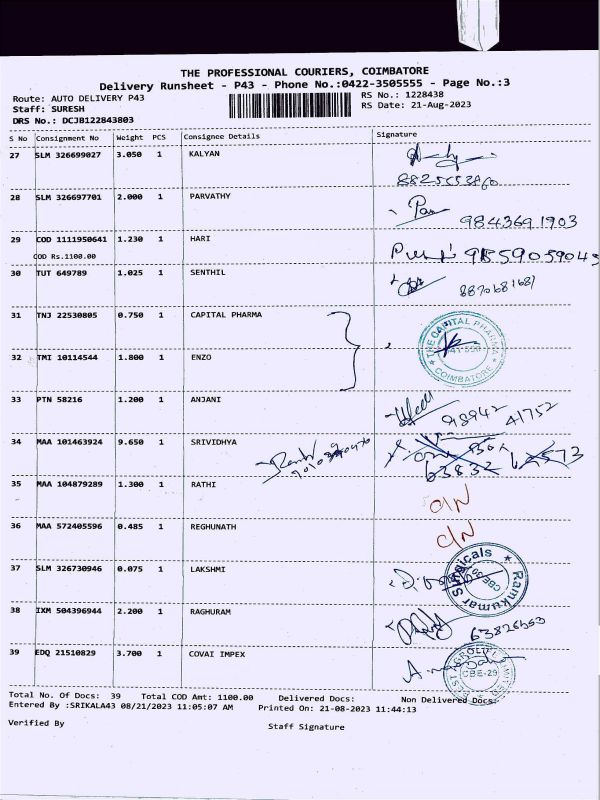 THE PROFESSIONAL COURIERS, COIMBATORE
Delivery Runsheet - P43 - Phone No.:0422-3505555 - Page No.:3
Route: AUTO DELIVERY P43 RS No.: 1228438
Staff: SURESH RS Date: 21-Aug-2023
DRS No.: DCJB122843803
S No Consignment No Weight PCS Consignee Details Signature
27 SLM 326699027 3.050 1 KALYAN
28 SLM 326697701 2.000 1 PARVATHY
9843691903
29 COD 1111950641 1.230 1 HARI
COD Rs.1100.00
30 TUT 649789 1.025 1 SENTHIL
31 TNJ 22530805 0.750 1 CAPITAL PHARMA
THE CAPITAL PHARMA
COIMBATORE
32 TMI 10114544 1.800 1 ENZO
33 PTN 58216 1.200 1 ANJANI
98942 41752
34 MAA 101463924 9.650 1 SRIVIDHYA
35 MAA 104879289 1.300 1 RATHI
36 MAA 572405596 0.485 1 REGHUNATH
37 SLM 326730946 0.075 1 LAKSHMI
Ramkumar Surgicals
38 IXM 504396944 2.200 1 RAGHURAM
39 EDQ 21510829 3.700 1 COVAI IMPEX
CBE-29
Total No. Of Docs: 39 Total COD Amt: 1100.00 Delivered Docs: Non Delivered Docs:
Entered By :SRIKALA43 08/21/2023 11:05:07 AM Printed On: 21-08-2023 11:44:13
Verified By Staff Signature